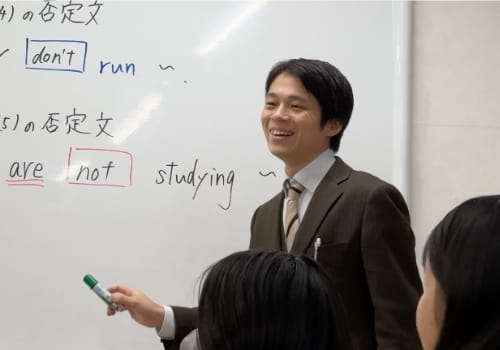 4)の否定文
don't run ~.
5)の否定文
are not studying ~